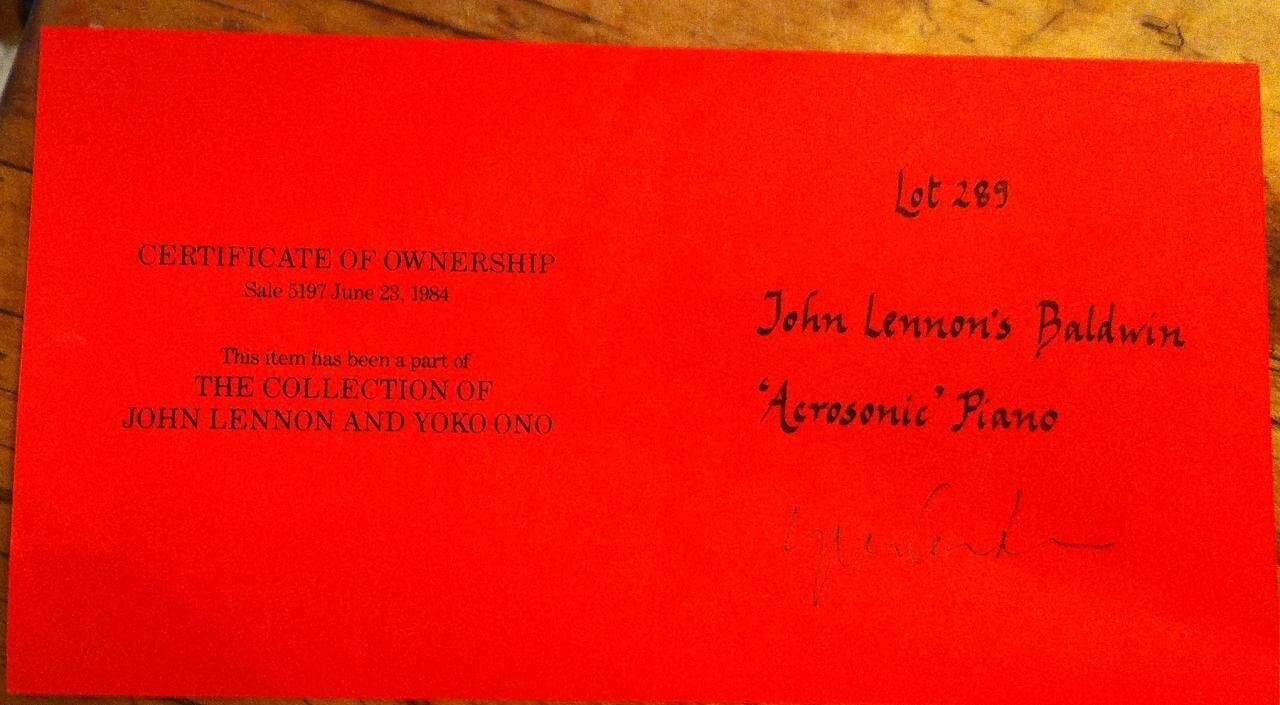 CERTIFICATE OF OWNERSHIP
Sale 5197 June 23, 1984
This item has been a part of
THE COLLECTION OF
JOHN LENNON AND YOKO ONO
Lot 289
John Lennon's Baldwin
'Acrosonic' Piano